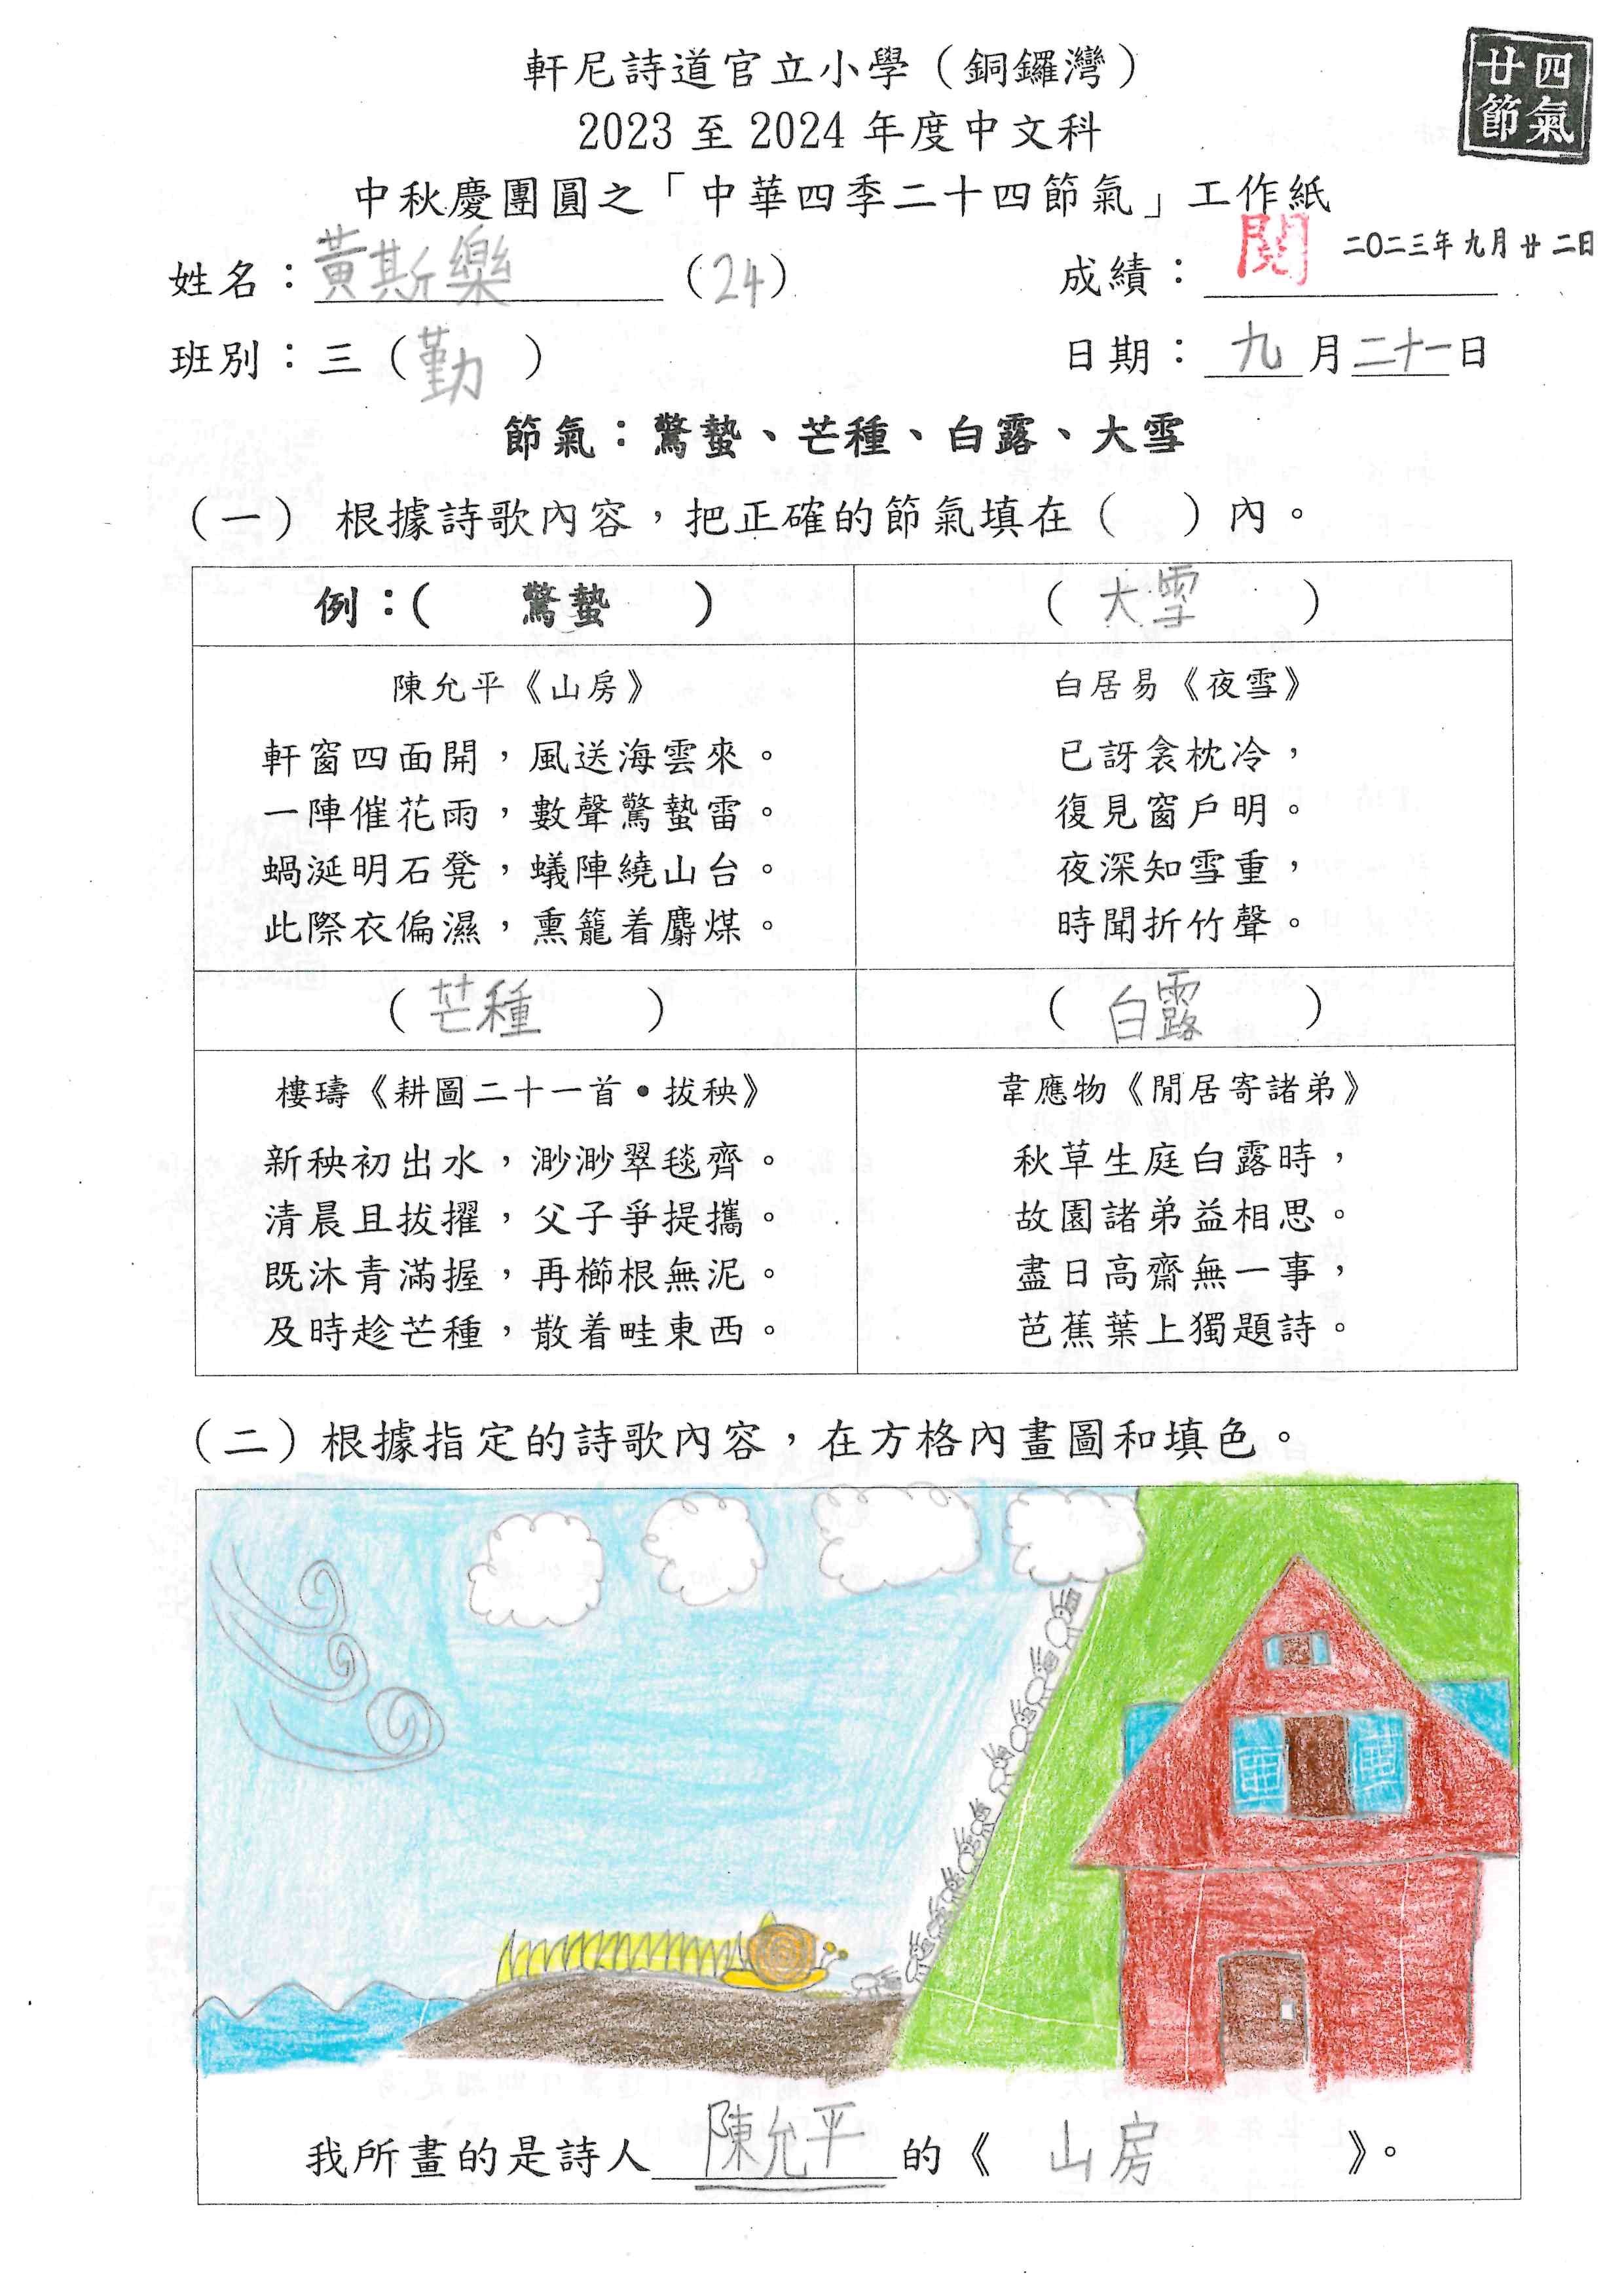 廿四
節氣
軒尼詩道官立小學（銅鑼灣）
2023 至 2024 年度中文科
中秋慶團圓之「中華四季二十四節氣」工作紙
姓名：黃斯樂（24） 成績：閱 二〇二三年九月廿二日
班別：三（勤） 日期：九月二十一日
節氣：驚蟄、芒種、白露、大雪
（一） 根據詩歌內容，把正確的節氣填在（ ）內。
例：( 驚蟄 )
陳允平《山房》
軒窗四面開，風送海雲來。
一陣催花雨，數聲驚蟄雷。
蝸涎明石凳，蟻陣繞山台。
此際衣偏濕，熏籠着麝煤。
（大雪）
白居易《夜雪》
已訝衾枕冷，
復見窗戶明。
夜深知雪重，
時聞折竹聲。
（芒種）
樓璹《耕圖二十一首•拔秧》
新秧初出水，渺渺翠毯齊。
清晨且拔擢，父子爭提攜。
既沐青滿握，再櫛根無泥。
及時趁芒種，散着畦東西。
（白露）
韋應物《閒居寄諸弟》
秋草生庭白露時，
故園諸弟益相思。
盡日高齋無一事，
芭蕉葉上獨題詩。
（二）根據指定的詩歌內容，在方格內畫圖和填色。
我所畫的是詩人陳允平的《山房》。